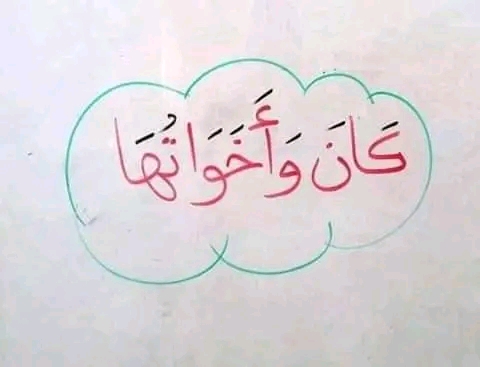 كَانَ وَأَخَوَاتُهَا